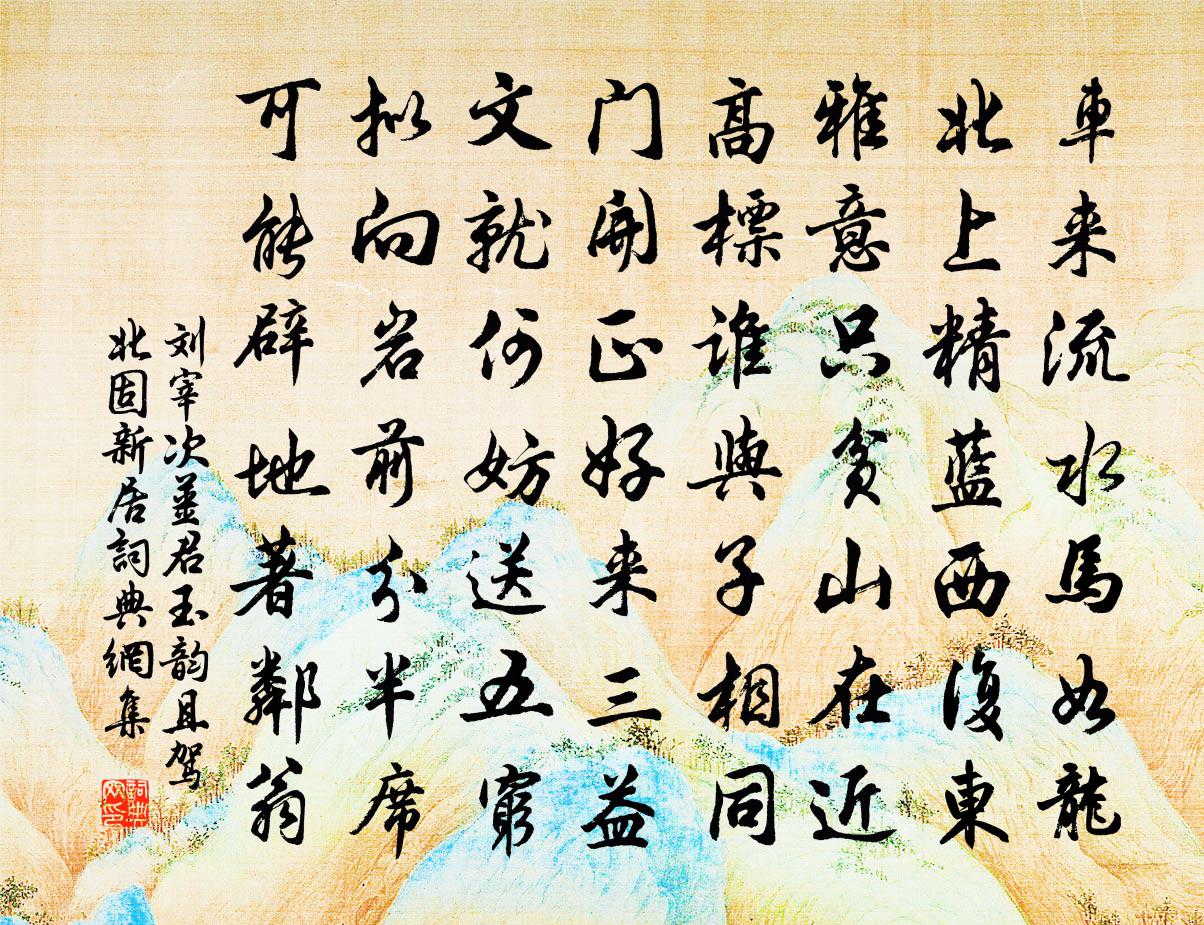 車来流水馬如龍
北上精藍西復東
雅意只貪山在近
高標誰與子相同
门開正好来三益
文就何妨送五窮
拟向岩前分半席
可能辟地著鄰翁
刘宰次薑君玉韵且驾
北固新居詞典網集